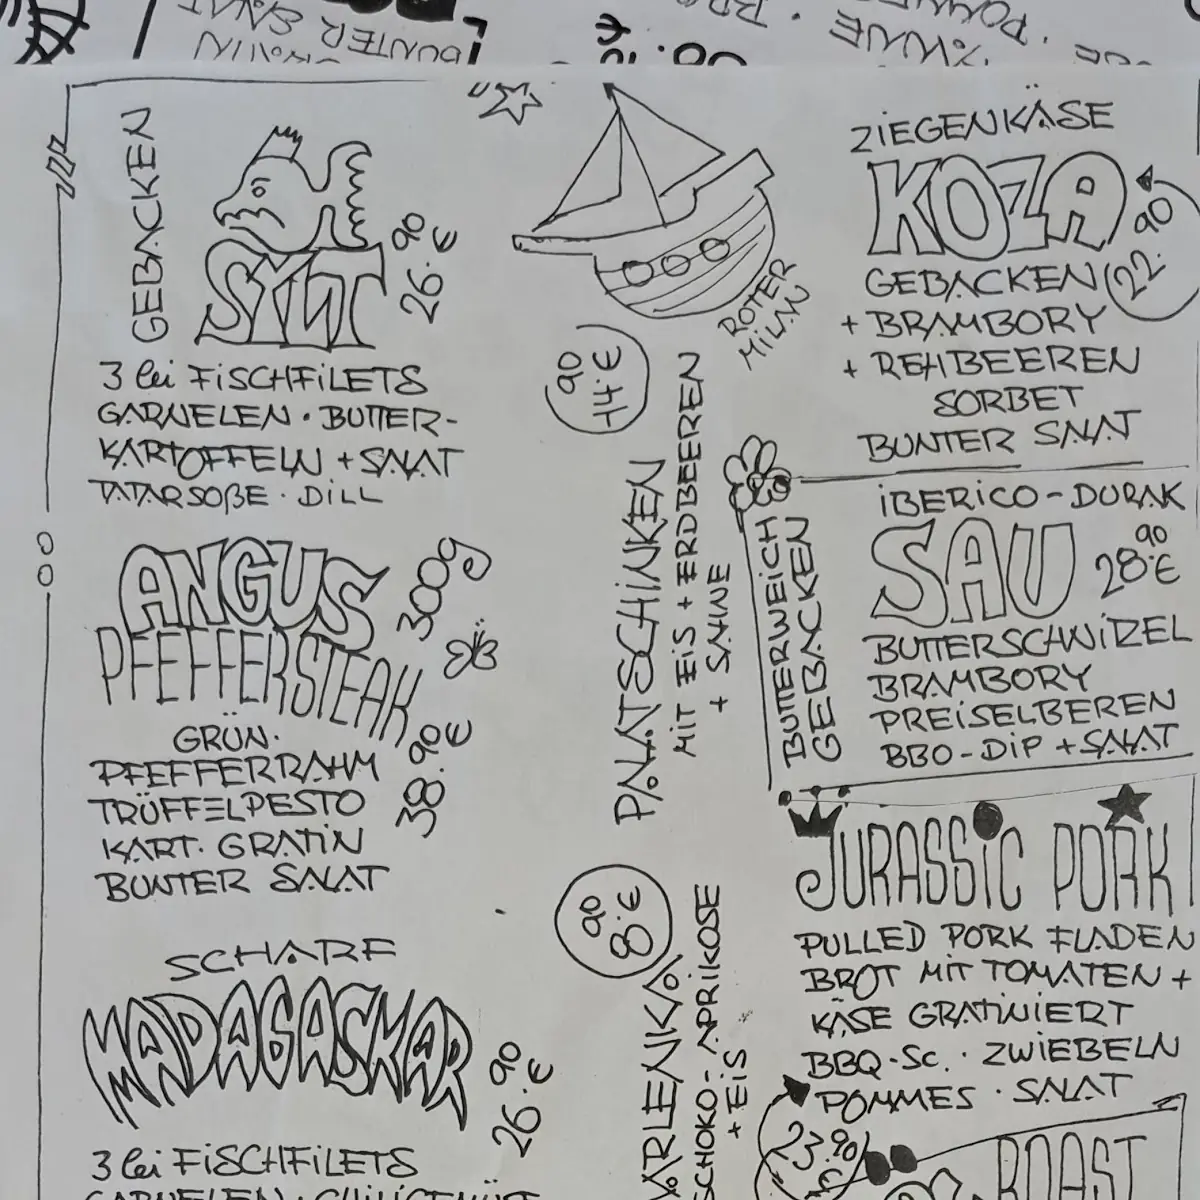 GEBACKEN
SYLT
26.90 €
3 lei FiSCHFiLETS
GARNELEN · BUTTER-
KARTOFFELN + SALAT
TATARSOßE · DiLL
ANGUS 300g
PFEFFERSTEAK
38.90 €
GRÜN.
PFEFFERRAHM
TRÜFFELPESTO
KART. GRATiN
BUNTER SALAT
SCHARF
MADAGASKAR
26.90 €
3 lei FiSCHFiLETS
ROTER
MiLAN
14.90 €
PALATSCHiNKEN
MiT EiS + ERDBEEREN
+ SAHNE
8.90 €
MARLENKA
SCHOKO-APRiKOSE
+ EiS
ZiEGENKÄSE
KOZA
22.90
GEBACKEN
+ BRAMBORY
+ REHBEEREN
SORBET
BUNTER SALAT
iBERiCO-DURAK
SAU 28.90 €
BUTTERWEiCH
GEBACKEN
BUTTERSCHNiZEL
BRAMBORY
PREiSELBEREN
BBQ-DiP + SALAT
JURASSiC PORK
PULLED PORK FLADEN
BROT MiT TOMATEN +
KÄSE GRATiNiERT
BBQ-Sc. · ZWiEBELN
POMMES · SALAT
23.90 €
ROAST